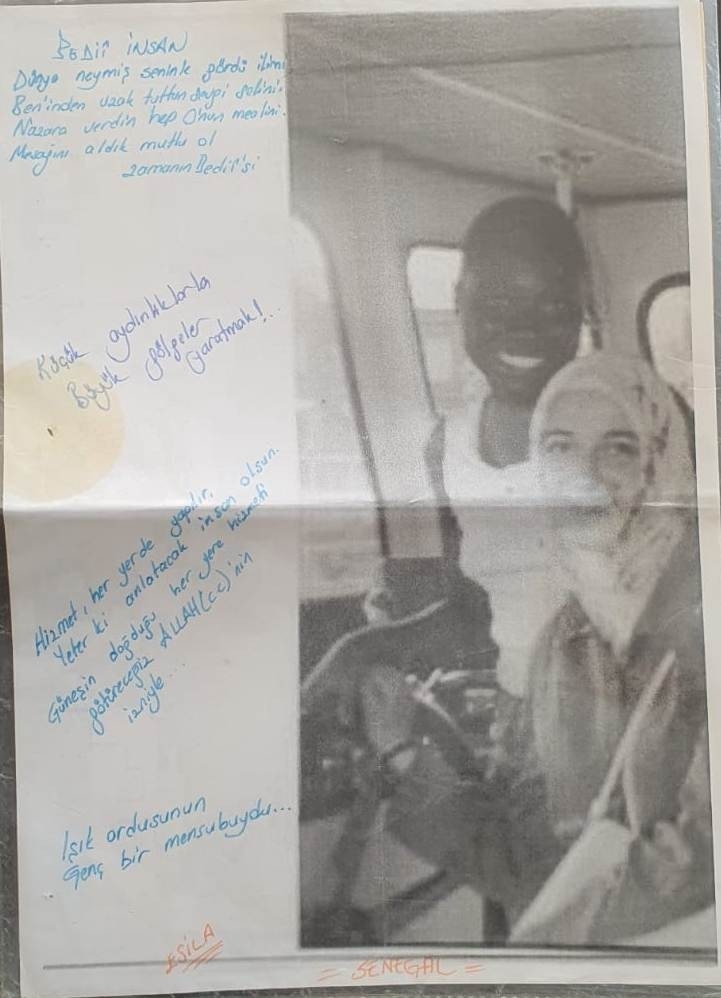 BEDİİ İNSAN
Dünya neymiş seninle gördü ilim
Ben'inden uzak tuttun sevgi selini.
Nazara verdin hep O'nun mealini.
Mesajını aldık mutlu ol
zamanın Bedii'si
Küçük aydınlıklarla
Büyük gölgeler
yaratmak!...
Hizmet, her yerde yapılır.
Yeter ki anlatacak insan olsun.
Güneşin doğduğu her yere hizmeti
götüreceğiz ALLAH(cc)'nin
izniyle...
Işık ordusunun
Genç bir mensubuydu...
ESİLA
= SENEGAL =